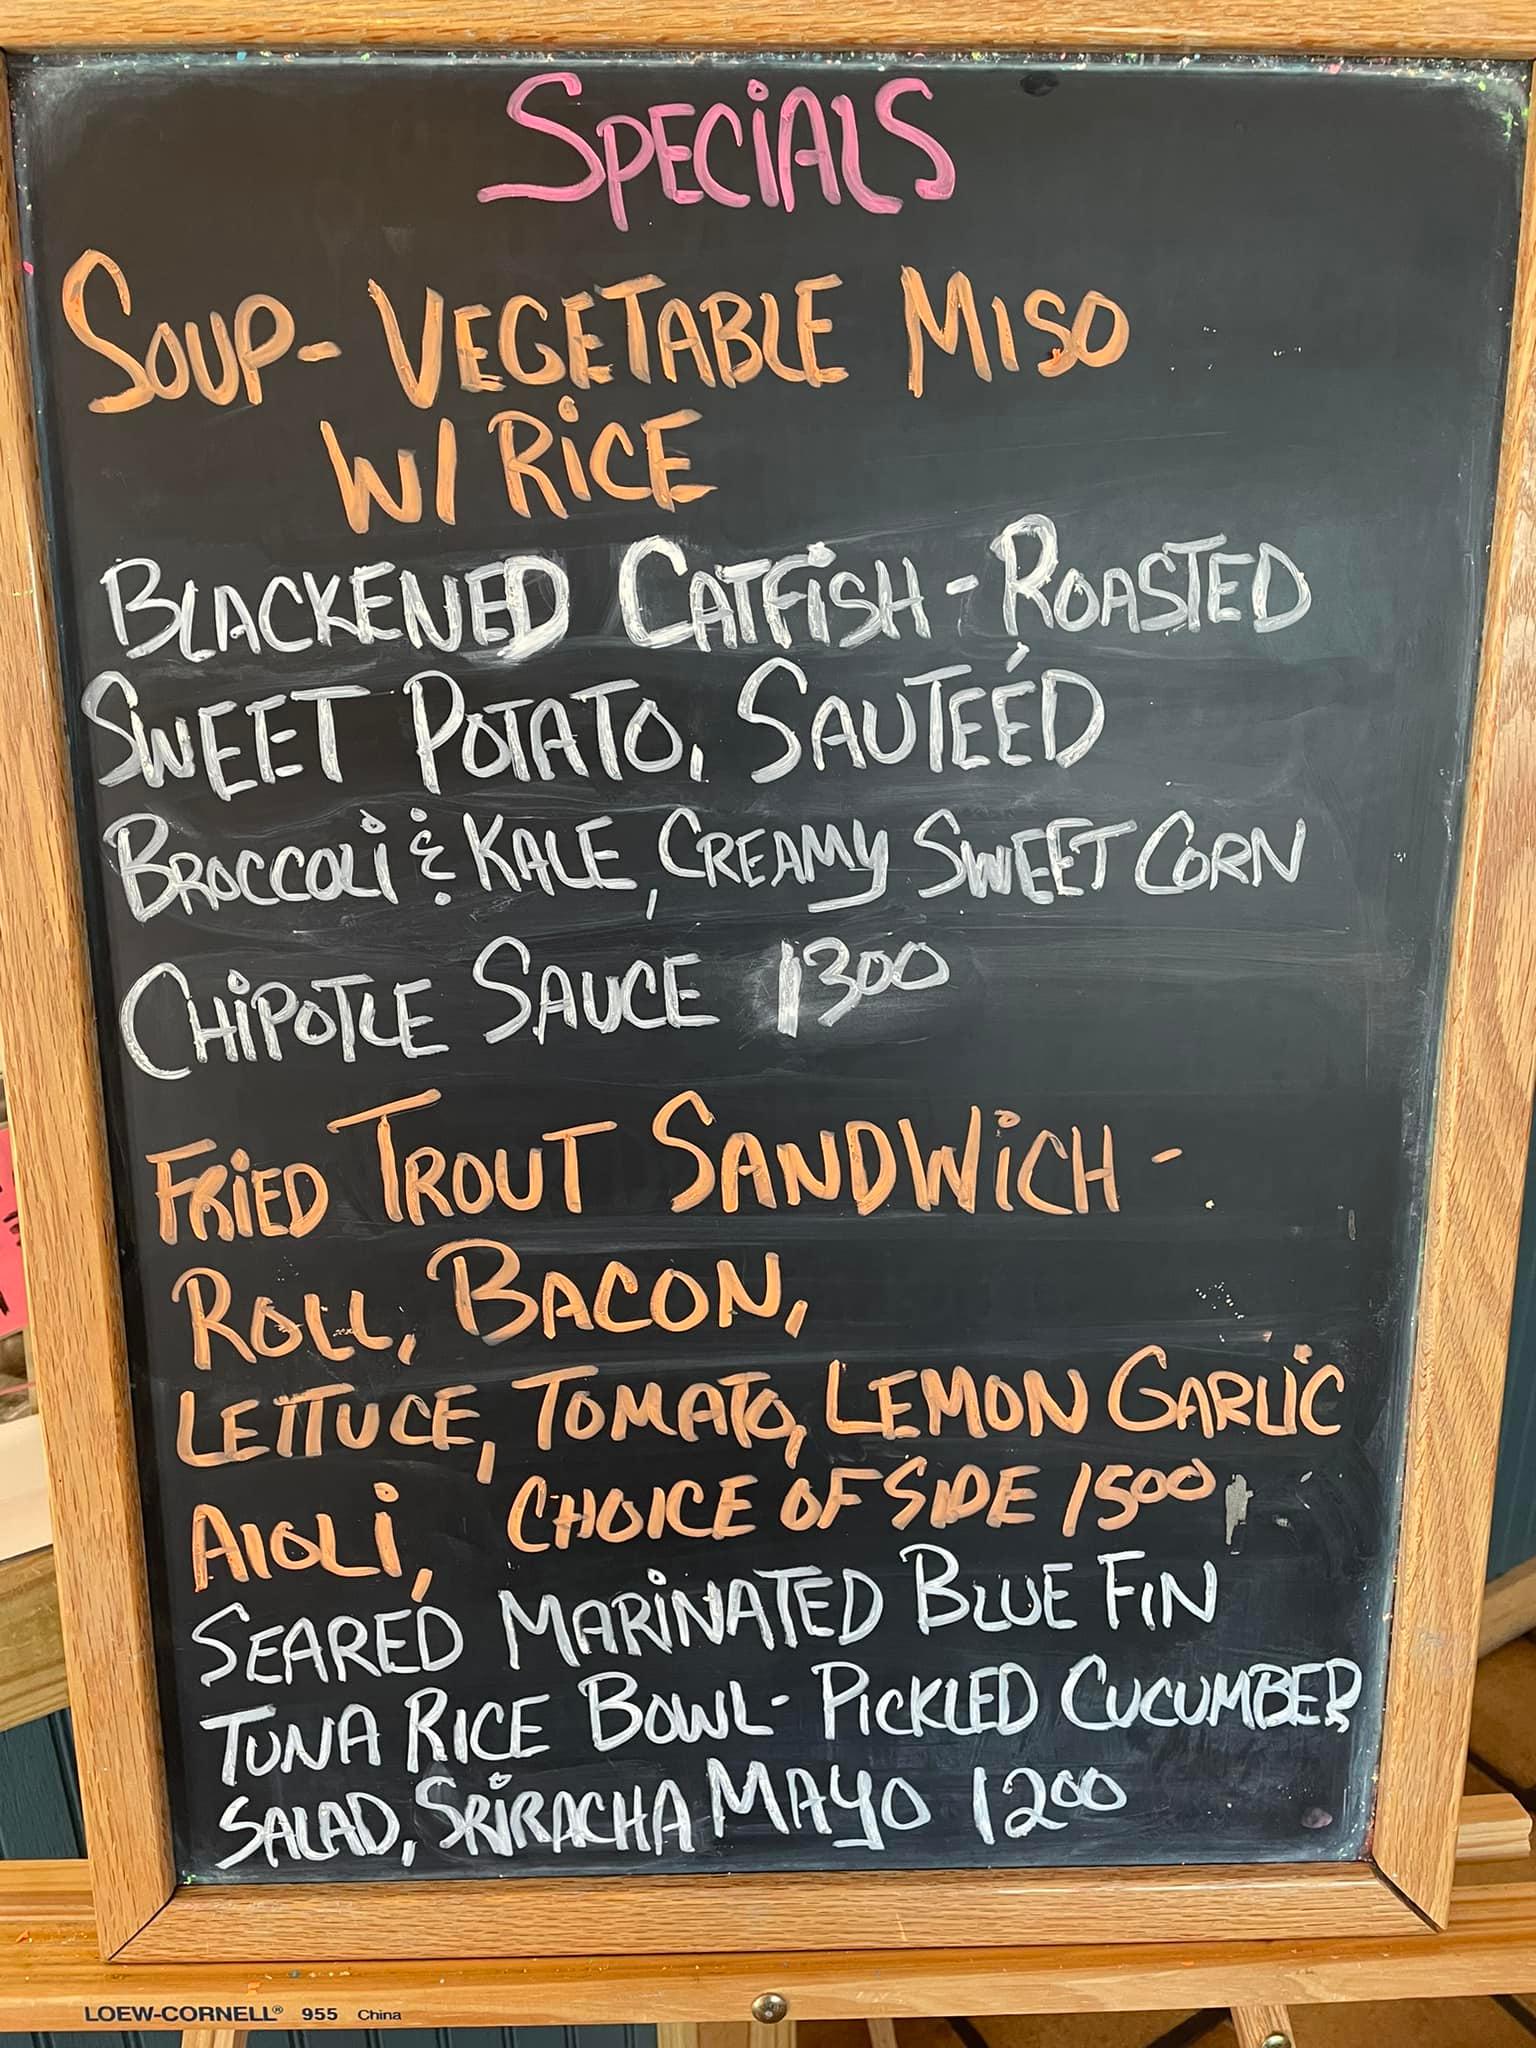 SPECIALS
SOUP- VEGETABLE MISO
W/ RICE
BLACKENED CATFISH - ROASTED
SWEET POTATO, SAUTEÉD
BROCCOLI & KALE, CREAMY SWEET CORN
CHIPOTLE SAUCE 1300
FRIED TROUT SANDWICH -
ROLL, BACON,
LETTUCE, TOMATO, LEMON GARLIC
AIOLI, CHOICE OF SIDE 1500
SEARED MARINATED BLUE FIN
TUNA RICE BOWL- PICKLED CUCUMBER
SALAD, SRIRACHA MAYO 1200
LOEW-CORNELL® 955 China